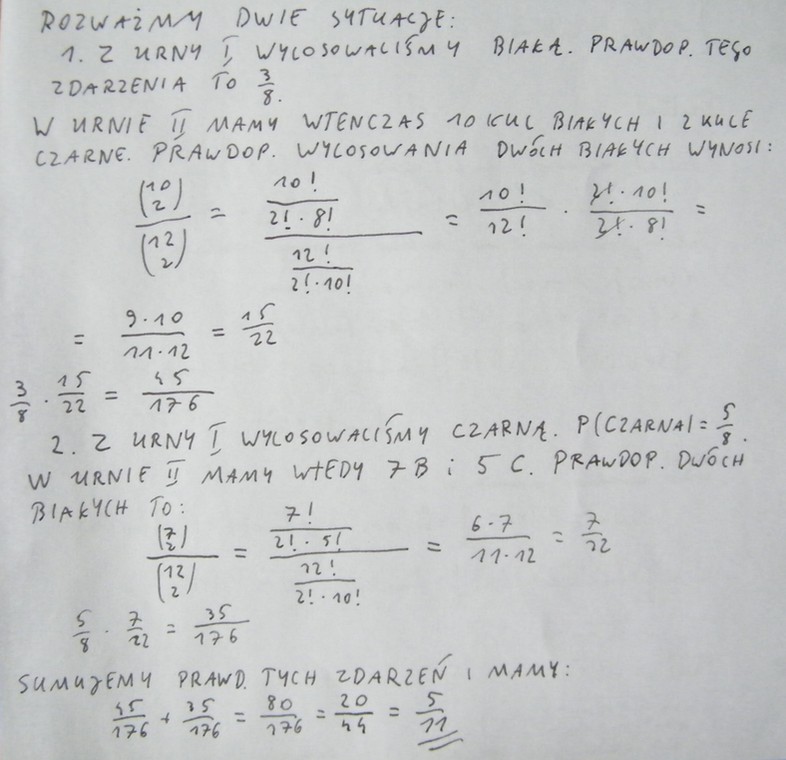 ROZWAŻMY DWIE SYTUACJE:
1. Z URNY I WYLOSOWALIŚMY BIAŁĄ. PRAWDOP. TEGO
ZDARZENIA TO 3/8.
W URNIE II MAMY WTENCZAS 10 KUL BIAŁYCH I 2 KULE
CZARNE. PRAWDOP. WYLOSOWANIA DWÓCH BIAŁYCH WYNOSI:
(10 2)/(12 2) = (10!/(2!·8!))/(12!/(2!·10!)) = 10!/12! · (2!·10!)/(2!·8!) =
= 9·10/11·12 = 15/22
3/8 · 15/22 = 45/176
2. Z URNY I WYLOSOWALIŚMY CZARNĄ. P(CZARNA) = 5/8.
W URNIE II MAMY WTEDY 7 B i 5 C. PRAWDOP. DWÓCH
BIAŁYCH TO:
(7 2)/(12 2) = (7!/(2!·5!))/(12!/(2!·10!)) = 6·7/11·12 = 7/22
5/8 · 7/22 = 35/176
SUMUJEMY PRAWD. TYCH ZDARZEŃ I MAMY:
45/176 + 35/176 = 80/176 = 20/44 = 5/11